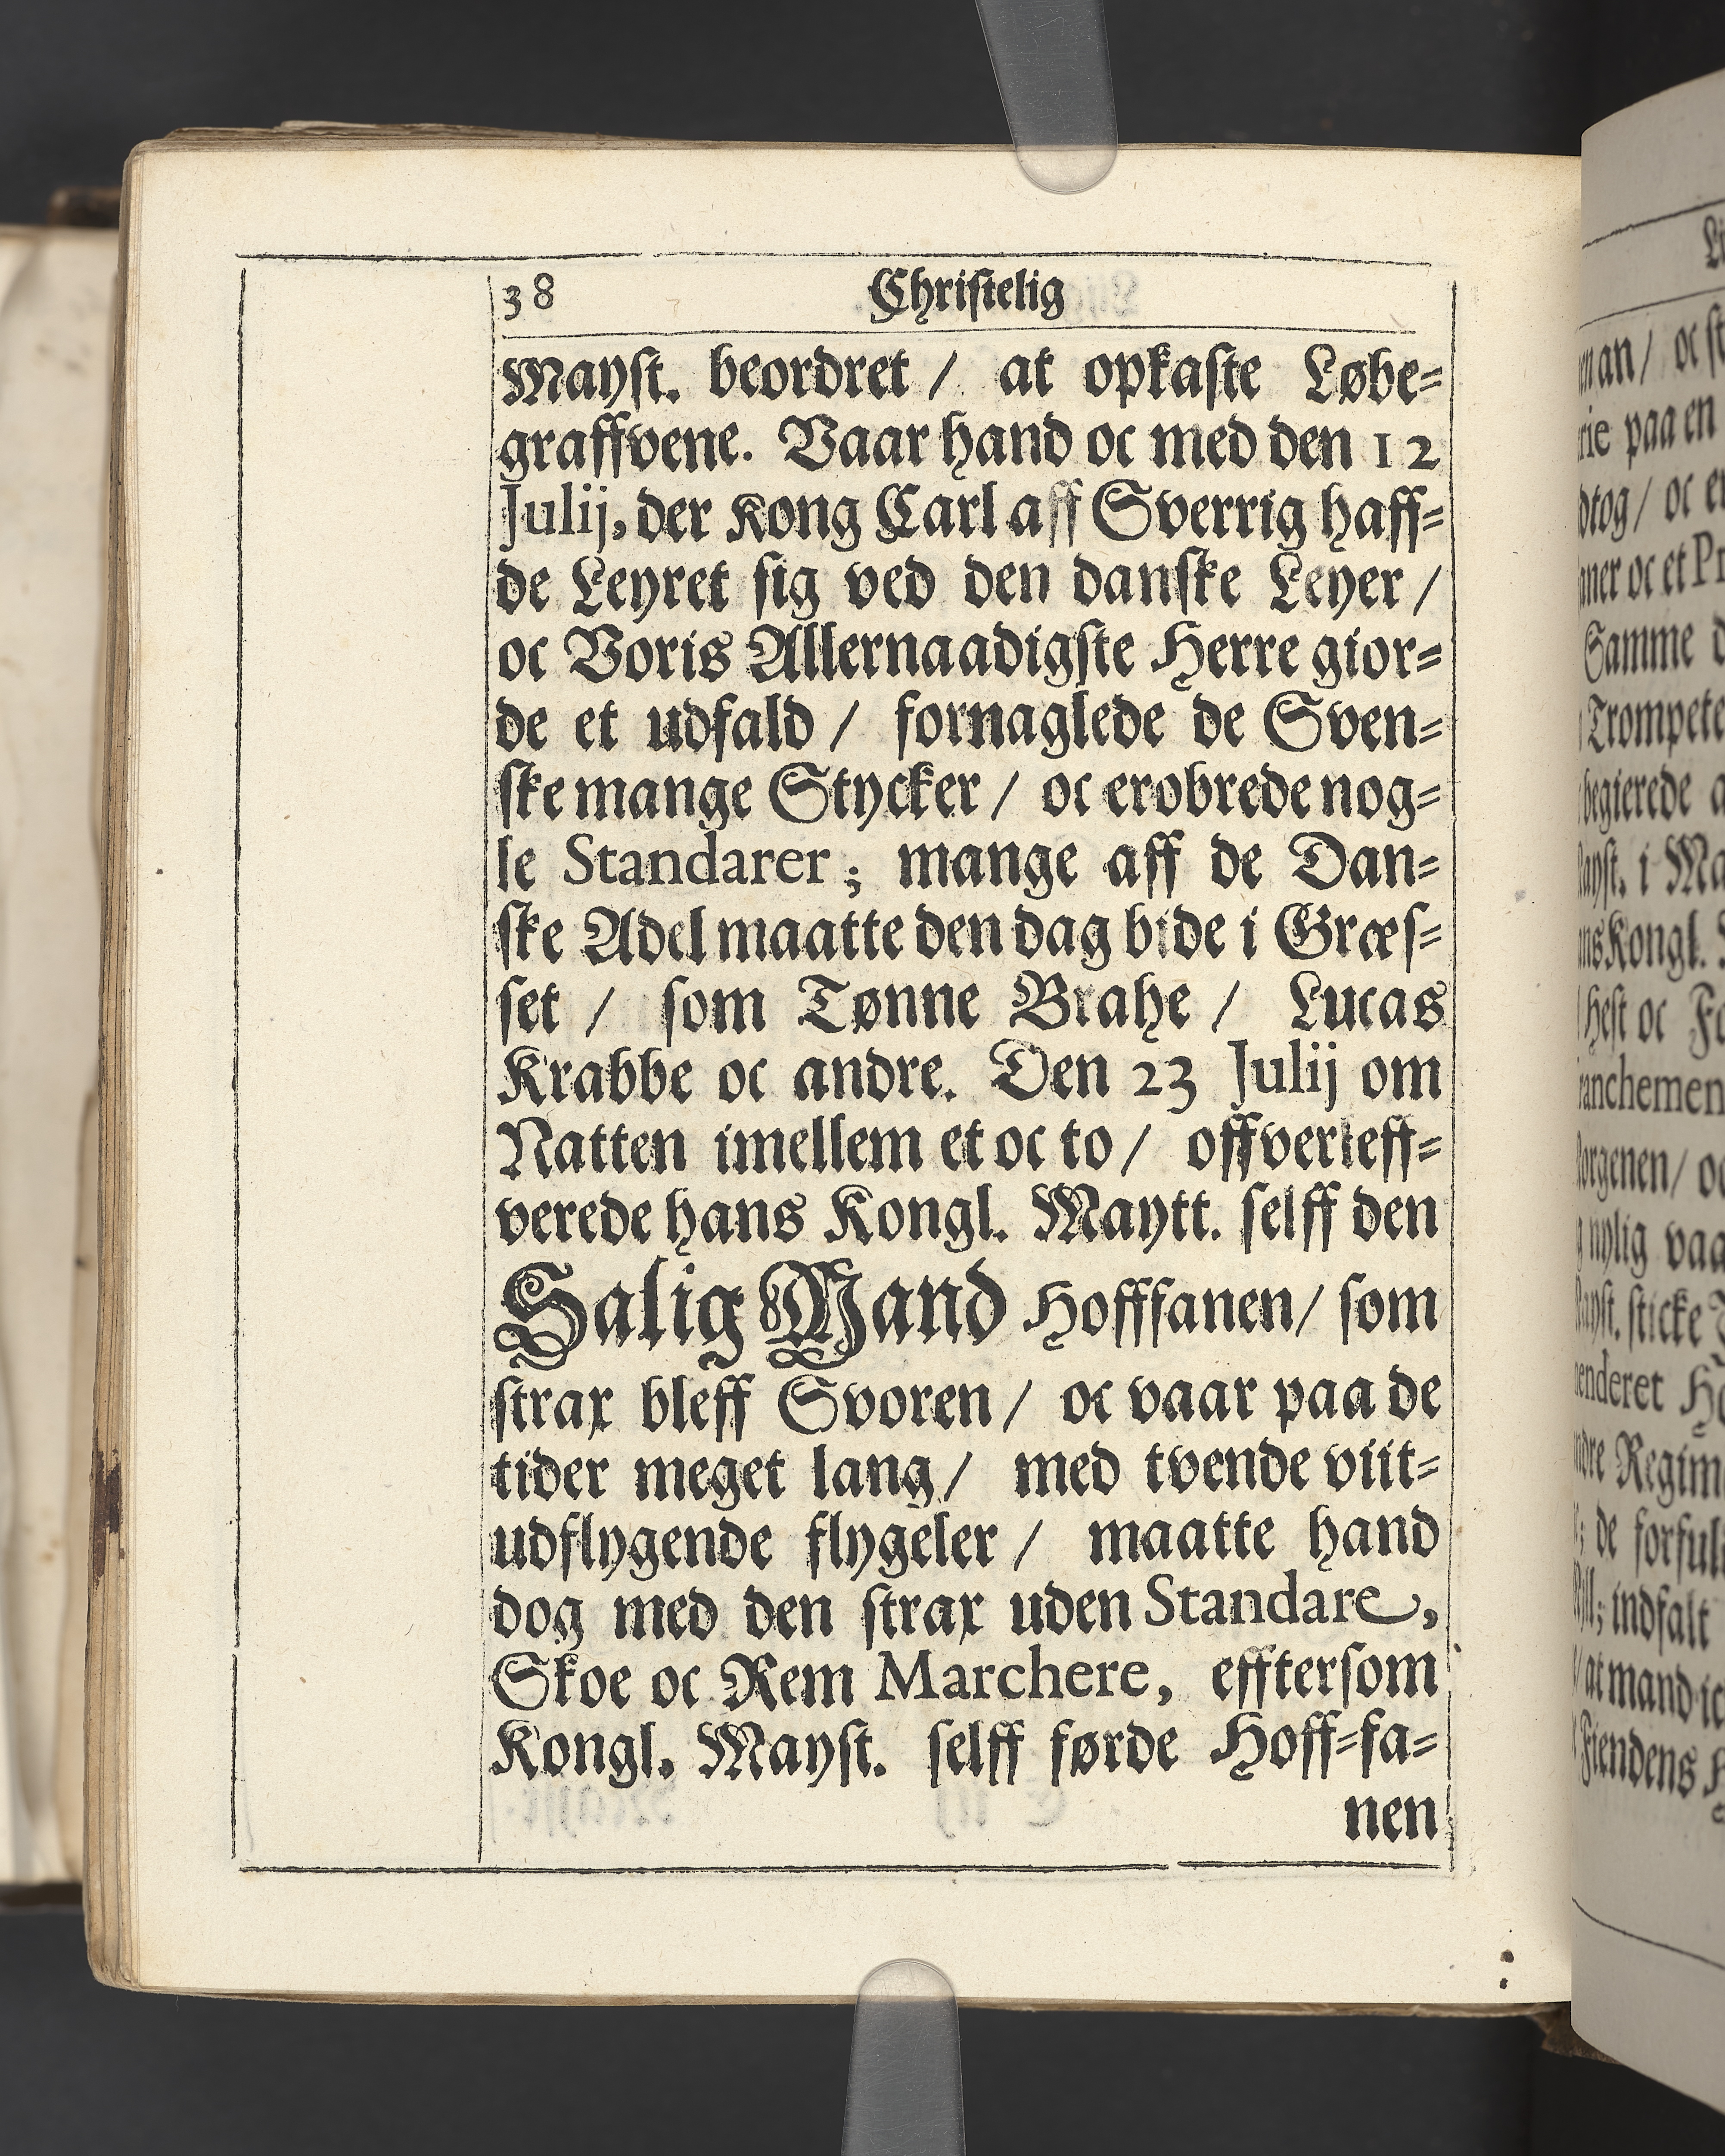 38 Christelig
Mayst. beordret / at opkaste Løbe-
graffvene. Vaar hand oc med den 12
Julij, der Kong Carl aff Sverrig haff-
de Leyret sig ved den danske Leyer /
oc Voris Allernaadigste Herre gior-
de et udfald / fornaglede de Sven-
ske mange Stycker / oc erobrede nog-
le Standarer; mange aff de Dan-
ske Adel maatte den dag bide i Græs-
set / som Tønne Brahe / Lucas
Krabbe oc andre. Den 23 Julij om
Natten imellem et oc to / offverleff-
verede hans Kongl. Maytt. selff den
Salig Mand Hofffanen / som
strax bleff Svoren / oc vaar paa de
tider meget lang / med tvende viit-
udflygende flygeler / maatte hand
dog med den strax uden Standare,
Skoe oc Rem Marchere, efftersom
Kongl. Mayst. selff førde Hoff-fa-
nen
an / oc
paa en
oc
oc et
Samme
i
Kongl.
Hest oc
nylig
sticke
de
indfalt
at mand
Fiendens